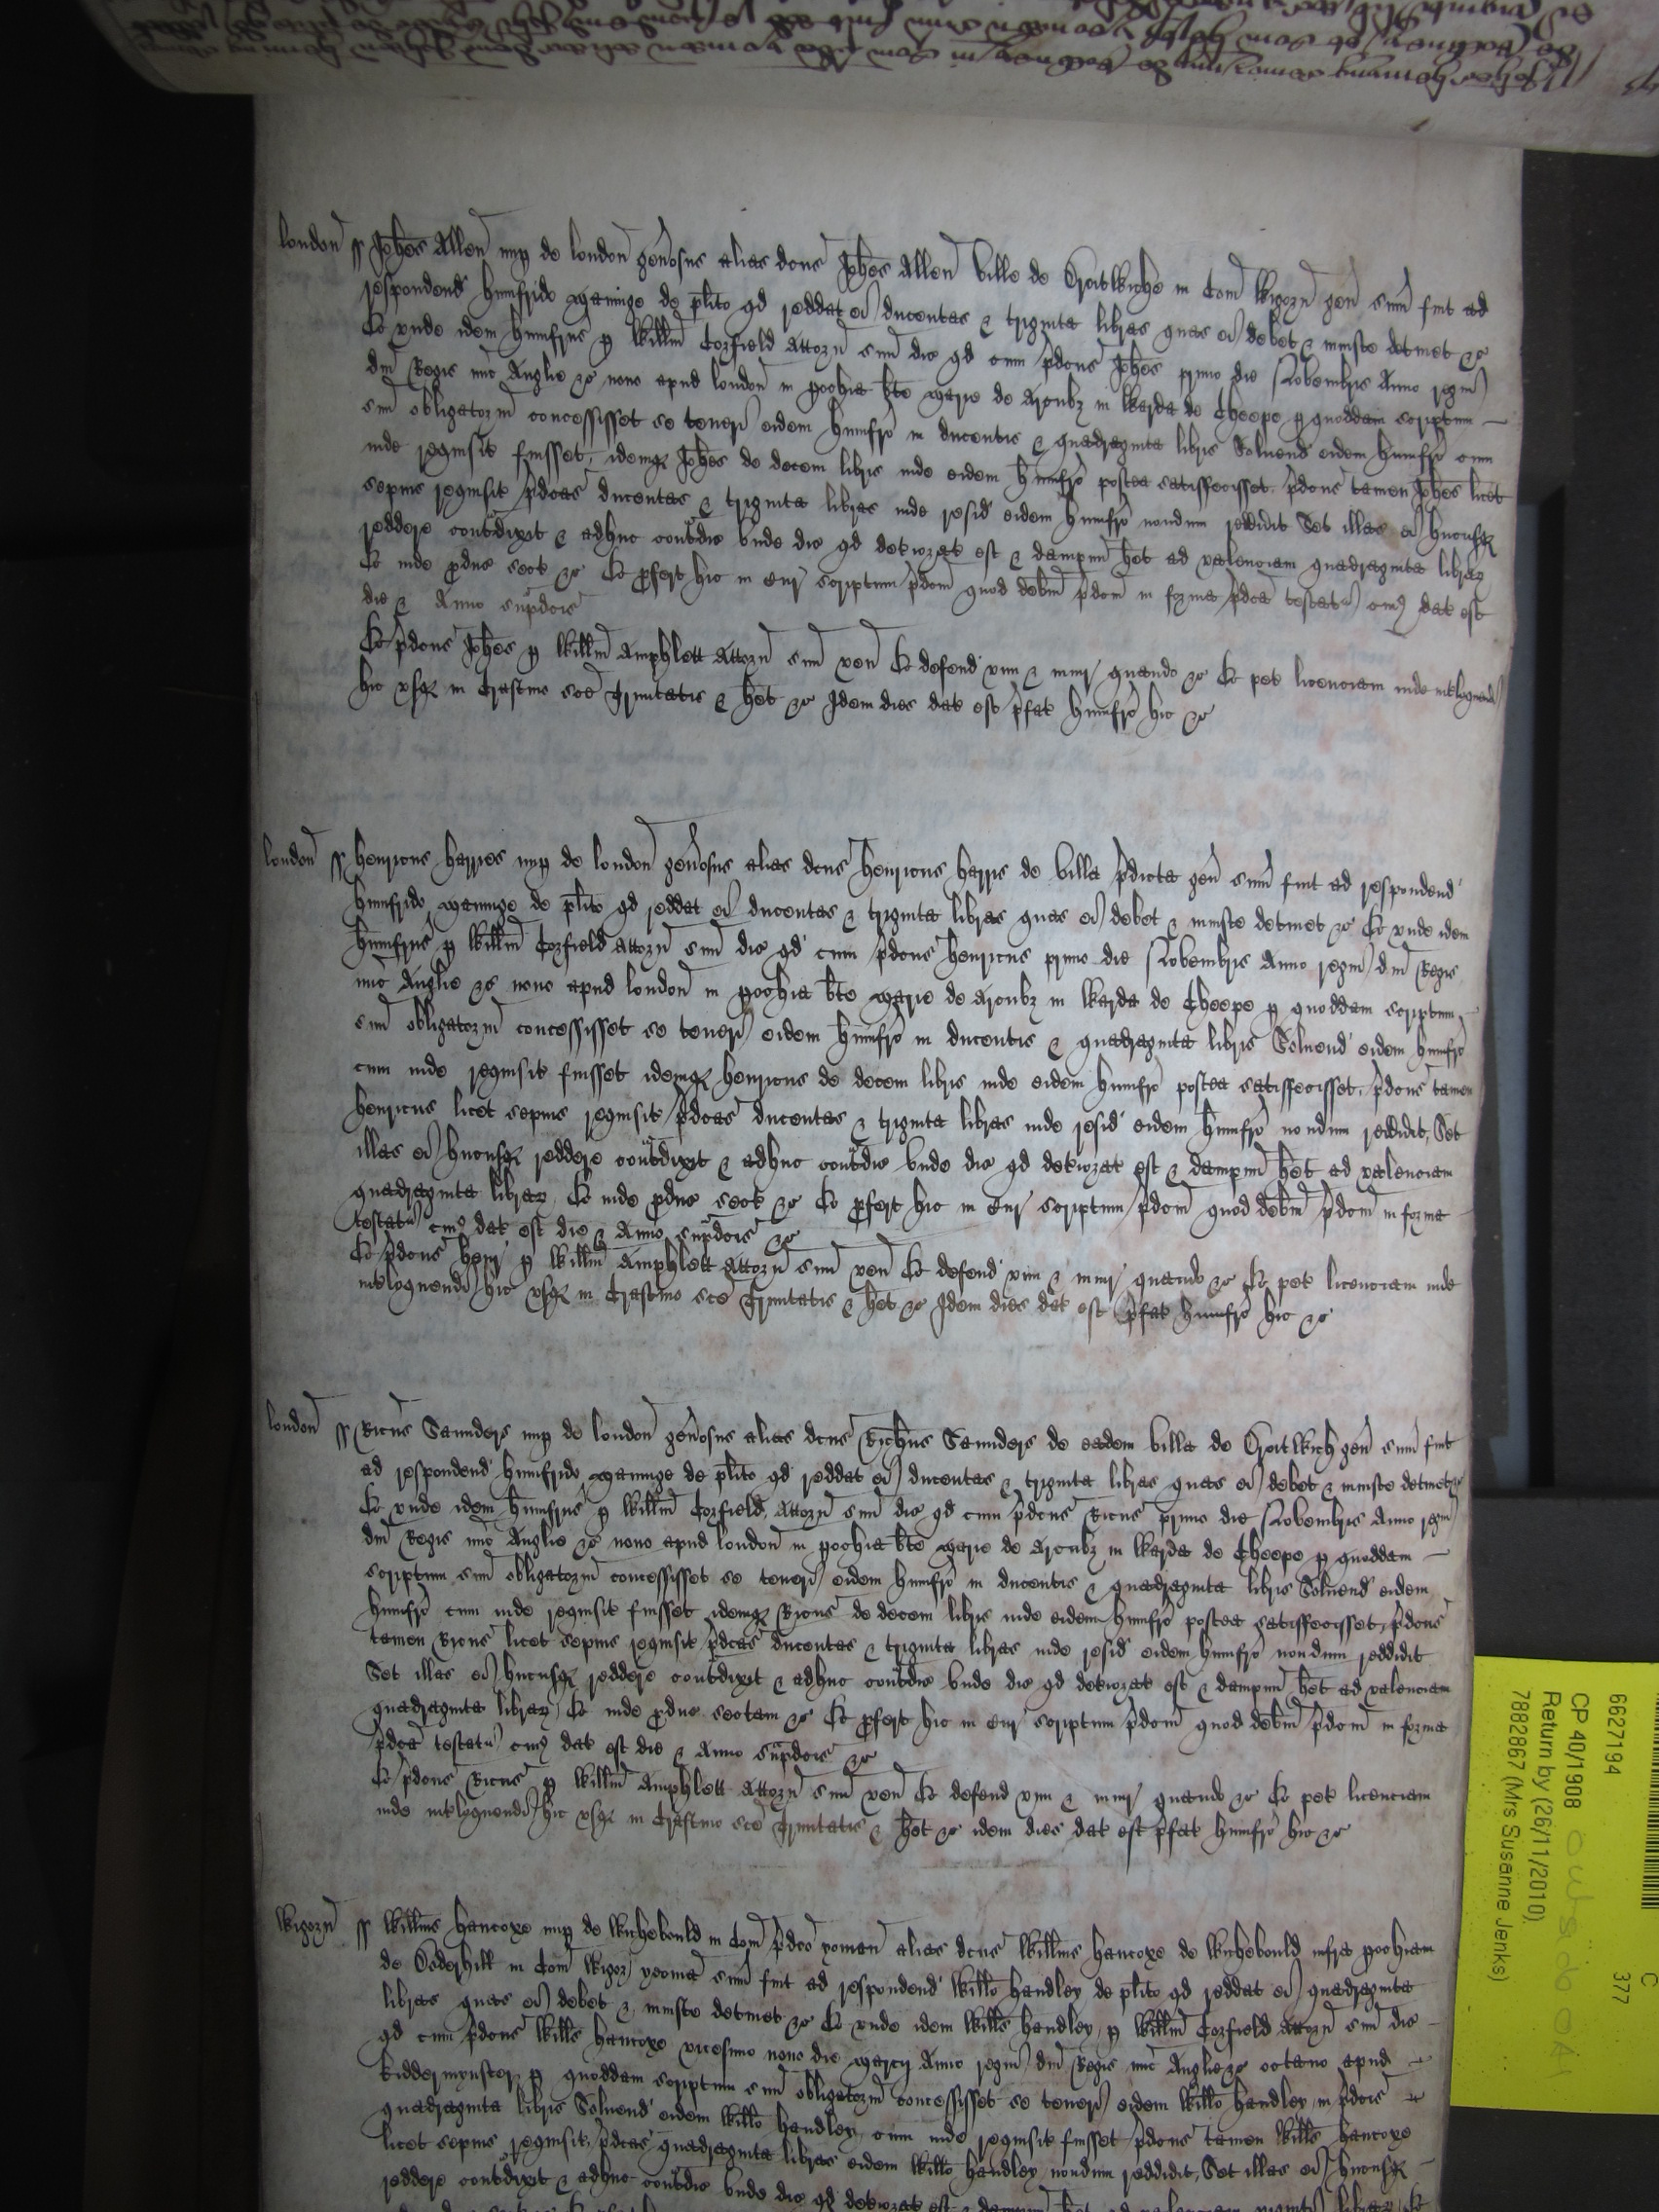 london ss Johes Allen nup de london genosus alias dcus Johes Allen ville de Droitwiche in Com Wigorn gen sum fuit ad
respondend Humfrido de plito qd reddat ei ducentas & triginta libras quas ei debet & iniuste detinet &c
Et unde idem Humfrus p Willm Corfield Attorn suu dic qd cum pdcus Johes primo die Novembris Anno regni
dni Regis nuc Anglie &c nono apud london in pochia bte Marie de Arcubz in Warda de Cheepe p quoddam scriptum
suu obligatoriu concessisset se teneri eidem Humfro in ducentis & quadraginta libris Solvend eidem Humfro cum
inde requisit fuisset idemqz Johes de decem libris inde eidem Humfro postea satisfecisset pdcus tamen Johes licet
sepius requisit pdcas ducentas & triginta libras inde resid eidem Humfro nondum reddidit Set illas ei hucusqz
reddere contdixit & adhuc contdic unde dic qd deteriorat est & dampnu het ad valenciam quadraginta librar
Et inde pduc sect &c Et pfert hic in Cur scriptum pdcm quod debm pdcm in forma pdca testatr cuius dat est
die & Anno supdcis
Et pdcus Johes p Willm Amphlett Attorn suu ven Et defend vim & iniur quando &c Et pet licenciam inde intloquendi
hic usqz in Crastino sce Trinitatis & het &c Idem dies dat est pfat Humfro hic &c
london ss Henricus Harries nup de london genosus alias dcus Henricus Harris de villa pdicta gen sum fuit ad respondend
Humfrido de plito qd reddat ei ducentas & triginta libras quas ei debet & iniuste detinet &c Et unde idem
Humfrus p Willm Corfield Attorn suu dic qd cum pdcus Henricus primo die Novembris Anno regni dni Regis
nuc Anglie &c nono apud london in pochia bte Marie de Arcubz in Warda de Cheepe p quoddam scriptum
suu obligatoriu concessisset se teneri eidem Humfro in ducentis & quadraginta libris Solvend eidem Humfro
cum inde requisit fuisset idemqz Henricus de decem libris inde eidem Humfro postea satisfecisset pdcus tamen
Henricus licet sepius requisit pdcas ducentas & triginta libras inde resid eidem Humfro nondum reddidit Set
illas ei hucusqz reddere contdixit & adhuc contdic unde dic qd deteriorat est & dampnu het ad valenciam
quadraginta librar Et inde pduc sect &c Et pfert hic in Cur scriptum pdcm quod debm pdcm in forma
testatr cuius dat est die & Anno supdcis &c
Et pdcus Henr p Willm Amphlett Attorn suu ven Et defend vim & iniur quando &c Et pet licenciam inde
intloquendi hic usqz in Crastino sce Trinitatis & het &c Idem dies dat est pfat Humfro hic &c
london ss Ricus Saunders nup de london genosus alias dcus Richus Saunders de eadem villa de Droitwich gen sum fuit
ad respondend Humfrido de plito qd reddat ei ducentas & triginta libras quas ei debet & iniuste detinet &c
Et unde idem Humfrus p Willm Corfield Attorn suu dic qd cum pdcus Ricus primo die Novembris Anno regni
dni Regis nuc Anglie &c nono apud london in pochia bte Marie de Arcubz in Warda de Cheepe p quoddam
scriptum suu obligatoriu concessisset se teneri eidem Humfro in ducentis & quadraginta libris Solvend eidem
Humfro cum inde requisit fuisset idemqz Ricus de decem libris inde eidem Humfro postea satisfecisset pdcus
tamen Ricus licet sepius requisit pdcas ducentas & triginta libras inde resid eidem Humfro nondum reddidit
Set illas ei hucusqz reddere contdixit & adhuc contdic unde dic qd deteriorat est & dampnu het ad valenciam
quadraginta librar Et inde pduc sectam &c Et pfert hic in Cur scriptum pdcm quod debm pdcm in forma
pdca testatr cuius dat est die & Anno supdcis &c
Et pdcus Ricus p Willm Amphlett Attorn suu ven Et defend vim & iniur quando &c Et pet licenciam
inde intloquendi hic usqz in Crastino sce Trinitatis & het &c idem dies dat est pfat Humfro hic &c
Wigorn ss Willms Hancoxe nup de Wichebould in Com pdco yoman alias dcus Willms Hancoxe de Wichebould infra pochiam
de Dederhill in Com Wigor yeoma sum fuit ad respondend Willo Handley de plito qd reddat ei quadraginta
libras quas ei debet & iniuste detinet &c Et unde idem Wills Handley p Willm Corfield Attorn suu dic
qd cum pdcus Wills Hancoxe vicesimo nono die Marcij Anno regni dni Regis nuc Anglie &c octavo apud
Kiddermynster p quoddam scriptum suu obligatoriu concessisset se teneri eidem Willo Handley in pdcis
quadraginta libris Solvend eidem Willo Handley cum inde requisit fuisset pdcus tamen Wills Hancoxe
licet sepius requisit pdcas quadraginta libras eidem Willo Handley nondum reddidit Set illas ei hucusqz
reddere contdixit & adhuc contdic unde dic qd deteriorat est & dampnu het ad valenciam viginti librar Et
6627194
C 377
CP 40/1908
Return by (26/11/2010)
7882867 (Mrs Susanne Jenks)